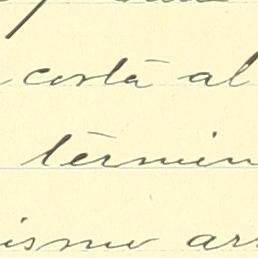 costa al
termin
ismo ar